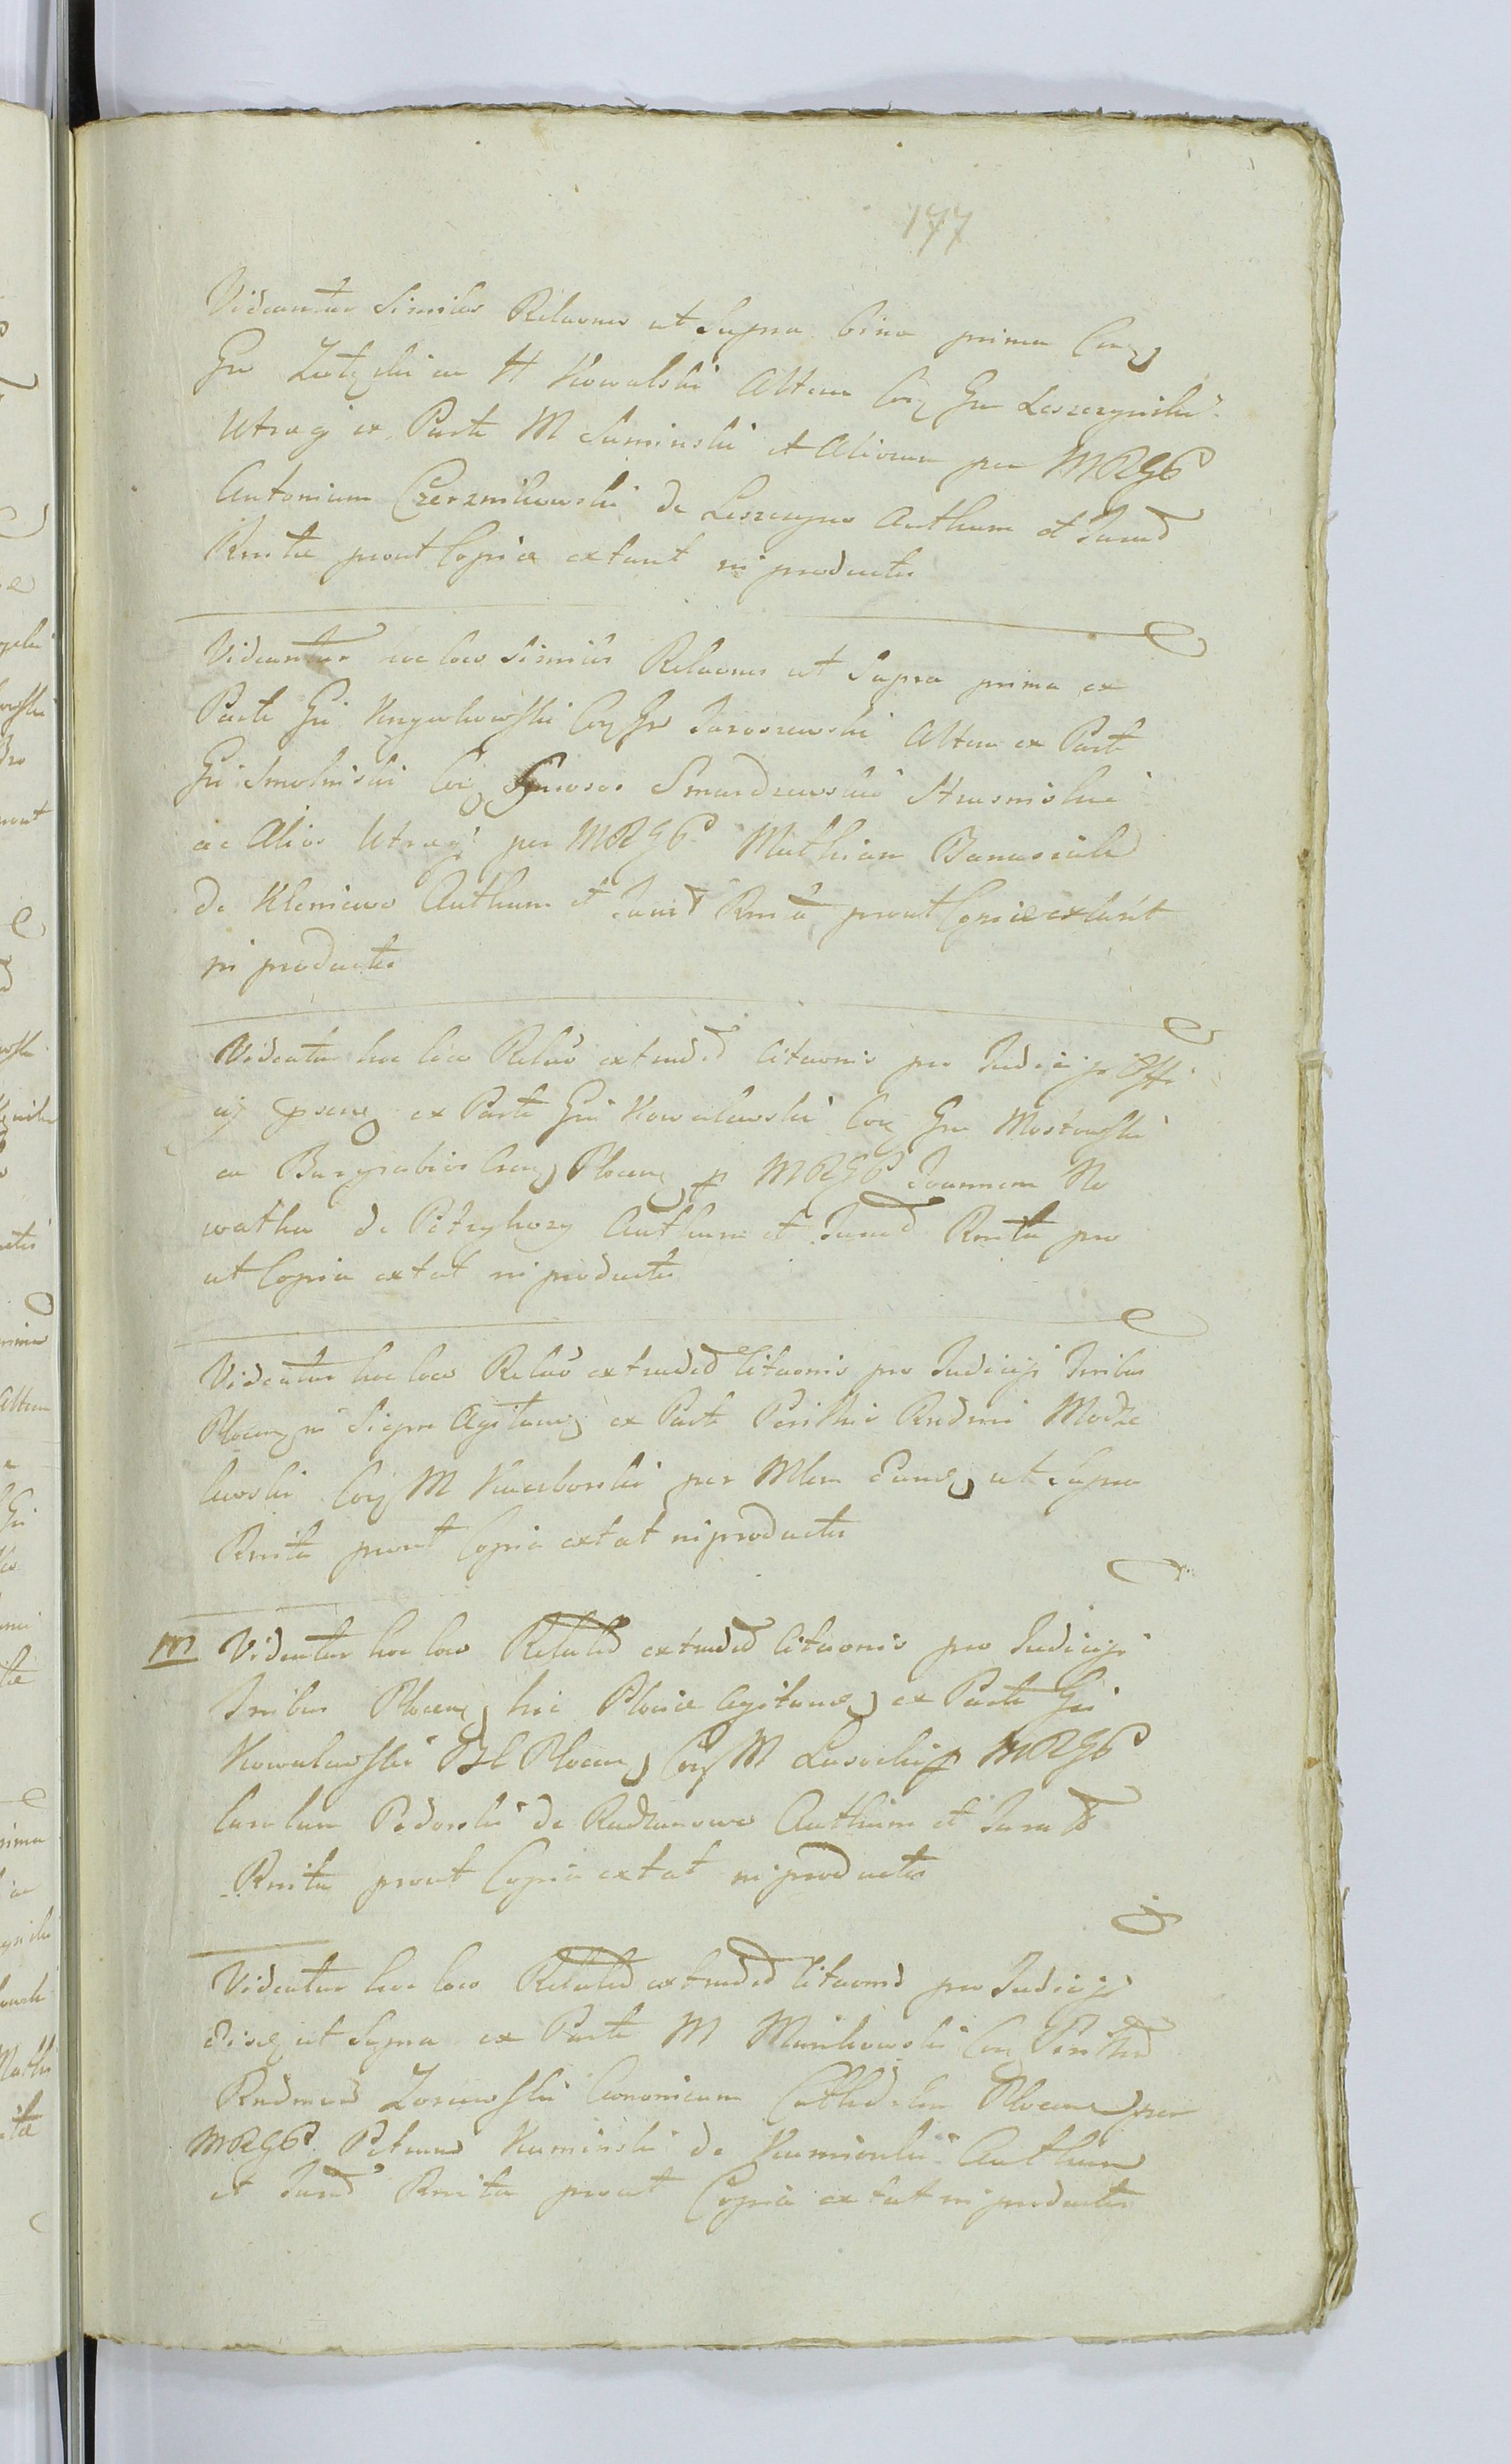 177
Videantur Similes Relaones ut Supra bina prima Con
Gn Zotzski ac H Kowalski Altera Con Gn Leszczynski
Utraq ex Parte M Suminski et Aliorum per MRGP
Antonium Czerznikowski de Leszczyno Authum et Jurad
Rnita prout Copiæ extant in productis
Videantur hoc loco Similes Relaones ut Supra prima ex
Parte Gn Krzywkowski Con Gn Jaroszewski Altera ex Parte
Gn Smolinski Con Gnrosos Smardzewskie Strusinskie
ac Alios Utraq per MRGP Mathiam Banasiak
de Kleniewo Authum et Jurad Rnita prout Copiæ extant
in productis
Videatur hoc loco Relao extraded Citaonis pro Judicijs Offi
cij ex Parte Gni Kowalewski Con Gn Mostowski
ac Burgrabios Cren Plocen p MRGP Joannem No
watka de Petrykozy Authum et Jurad Rnita pro
ut Copia extat in productis
Videatur hoc loco Relao extraded Citaonis pro Judicijs Tribus
Plocen in Sierpc Agitan ex Parte Perillris Rndmi Modze
lewski Con M Kucborski per Mlem Eund ut Supra
Rnita prout Copia extat in productis
m Videatur hoc loco Relatio extraded Citaonis pro Judicijs
Tribus Plocen hic Plociæ Agitand ex Parte Gn
Kowalewski BC Plocen Con M Lasocki p MRGP
Carolum Pedorski de Radzanowo Authum et Jurad
Rnita prout Copia extat in productis
Videatur hoc loco Relatio extraded Citaonis pro Judicijs
Eisd ut Supra ex Parte M Mankowski Con Perillrd
Rndmum Zorawski Canonicum Cathedralem Plocen per
MRGP Petrum Kaminski de Kamionki Authum
et Jurad Rnita prout Copia extat in productis